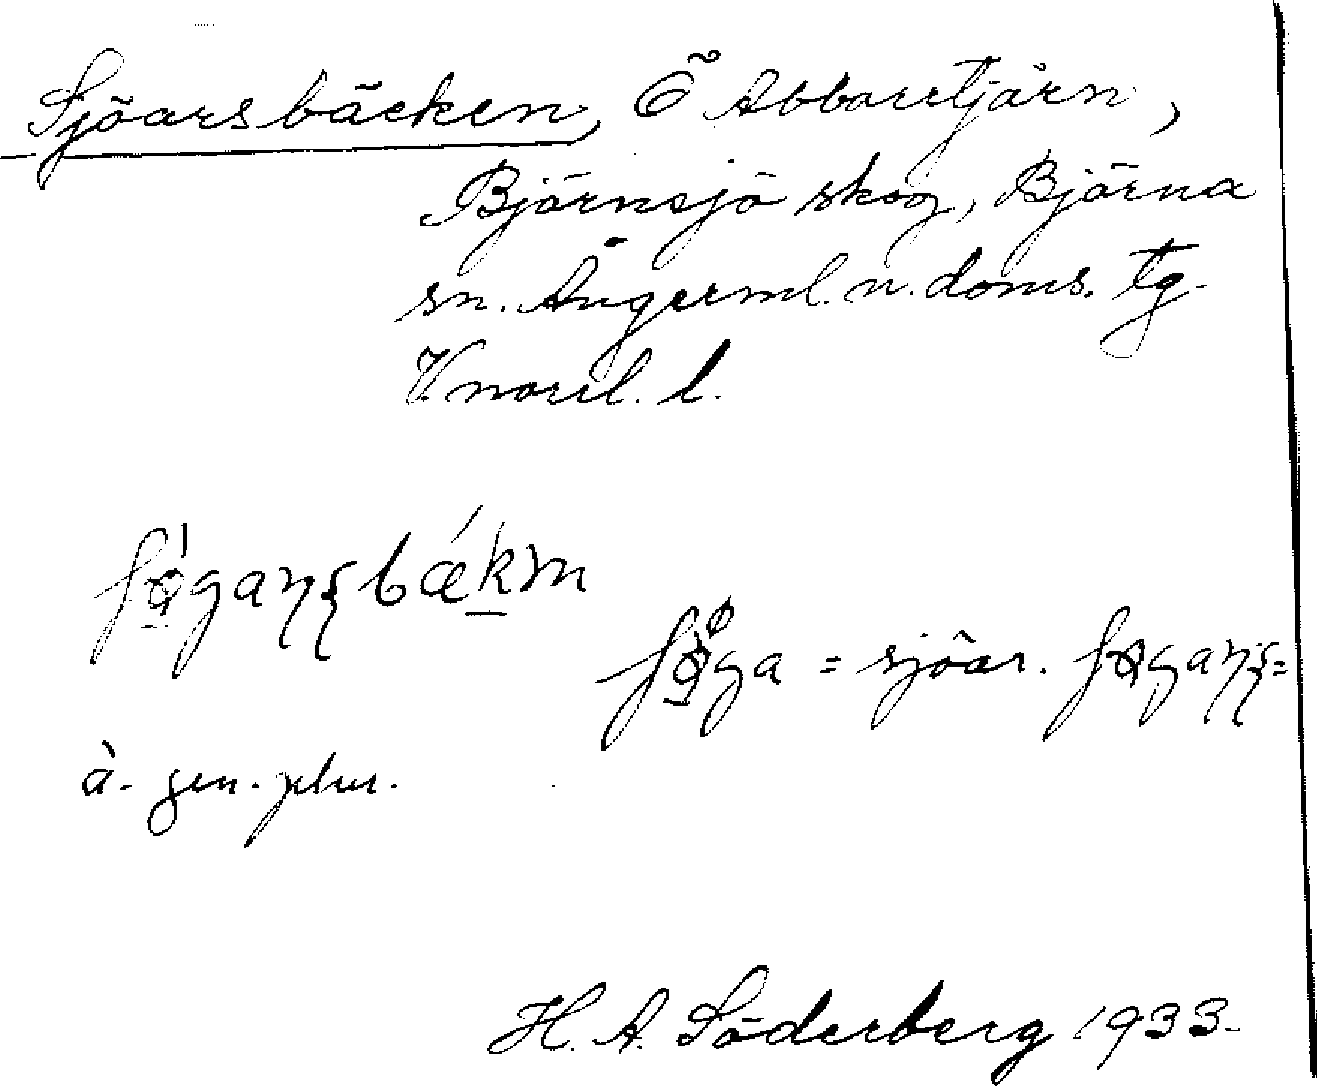 Sjöarsbäcken, Ö Abborrtjärn,
Björnsjö skog, Björna
sn. Ångerml. n. doms. tg.
V. norrl. l.
= sjöar.
à- gen. plur.
H. A. Söderberg 1933.